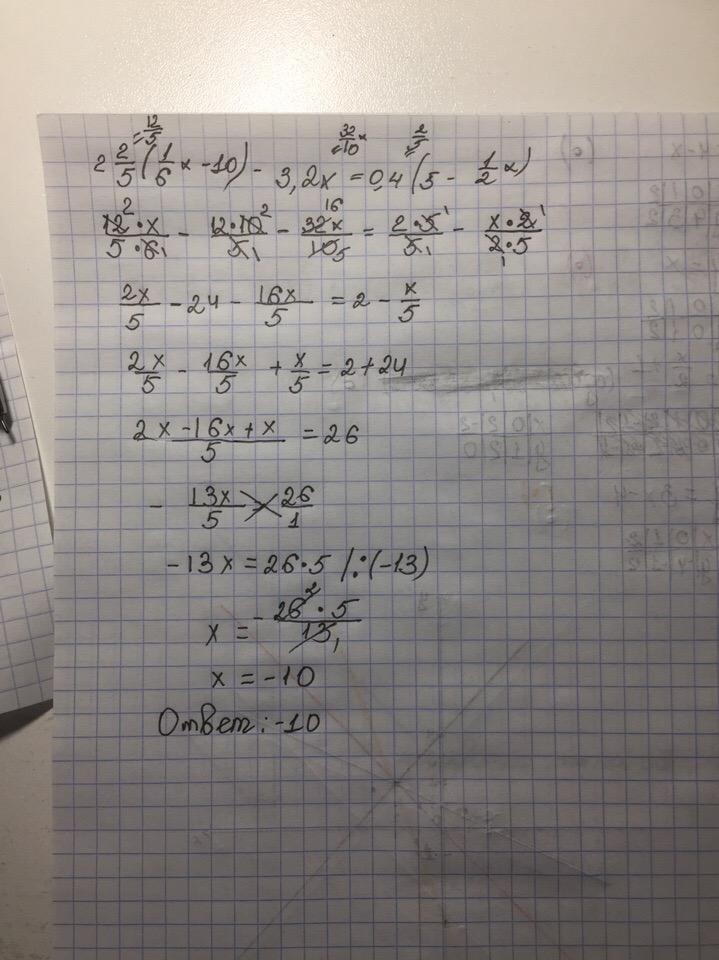 2 2/5 (1/6 x - 10) - 3,2x = 0,4 (5 - 1/2 x)
= 12/5 = 32/10 x = 2/5
12·x/5·6 - 12·10/5 - 32x/10 = 2·5/5 - x·2/2·5
2 1 2 1 16 5 1 1 1 1
2x/5 - 24 - 16x/5 = 2 - x/5
2x/5 - 16x/5 + x/5 = 2 + 24
2x - 16x + x/5 = 26
- 13x/5 = 26/1
-13x = 26·5 |:(-13)
x = - 26·5/13
2 1
x = -10
Ответ: -10